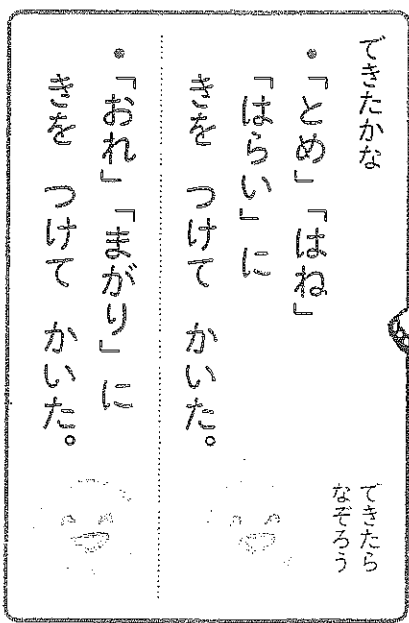 できたかな
できたら
なぞろう
・「とめ」「はね」
「はらい」に
きを つけて かいた。
・「おれ」「まがり」に
きを つけて かいた。